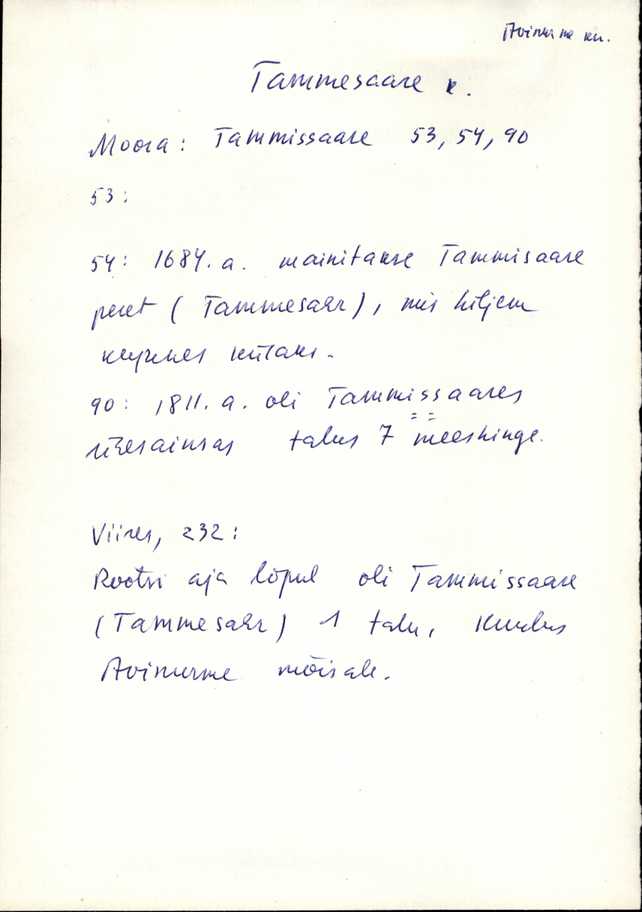 Avinurme khn.
Tammesaare k.
Moora: Tammissaare 53, 54, 90
53:
54: 1684. a. mainitakse Tammisaare
peret (Tammesahr), mis hiljem
külaks.
90: 1811. a. oli Tammissaares
üksainsas talus 7 meeshinge.
Viires, 232:
Rootsi aja lõpul oli Tammissaare
(Tammesahr) 1 talu, kuulus
Avinurme mõisale.